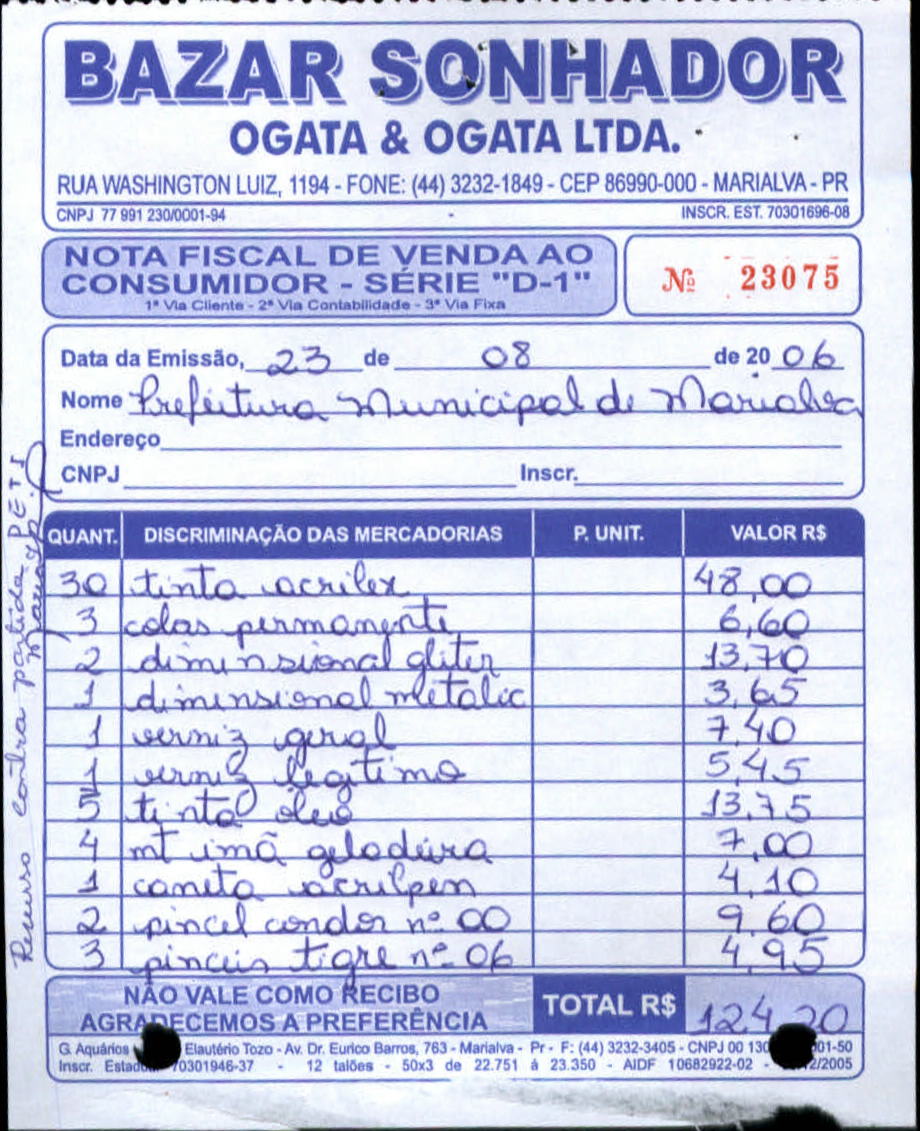 BAZAR SONHADOR
OGATA & OGATA LTDA.
RUA WASHINGTON LUIZ, 1194 - FONE: (44) 3232-1849 - CEP 86990-000 - MARIALVA - PR
CNPJ 77 991 230/0001-94 INSCR. EST. 70301696-08
NOTA FISCAL DE VENDA AO
CONSUMIDOR - SÉRIE "D-1"
1ª Via Cliente - 2ª Via Contabilidade - 3ª Via Fixa
Nº 23075
Data da Emissão, 23 de 08 de 20 06
Nome Prefeitura Municipal de Marialva
Endereço
CNPJ Inscr.
QUANT. DISCRIMINAÇÃO DAS MERCADORIAS P. UNIT. VALOR R$
30 tinta acrilex 48,00
3 colas permanente 6,60
2 dimensional gliter 13,70
1 dimensional metalic 3,65
1 verniz geral 7,40
1 verniz legitimo 5,45
5 tinta oleo 13,75
4 mt imã geladeira 7,00
1 caneta acrilpen 4,10
2 pincel condor nº 00 9,60
3 pinceis tigre nº 06 4,95
NÃO VALE COMO RECIBO
AGRADECEMOS A PREFERÊNCIA
TOTAL R$ 124,20
G. Aquários Elautério Tozo - Av. Dr. Eurico Barros, 763 - Marialva - Pr - F: (44) 3232-3405 - CNPJ 00 130 001-50
Inscr. Estadu 70301946-37 - 12 talões - 50x3 de 22.751 à 23.350 - AIDF 10682922-02 - 2/2005
Recurso contra partida PETI